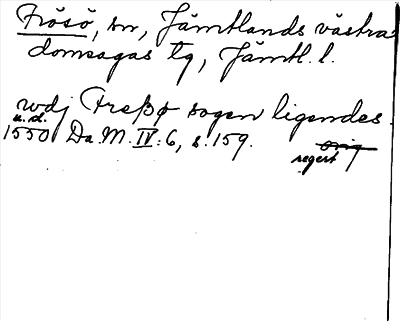 Frösö, sn, Jämtlands västra
domsagas tg, Jämtl. l.
wdj Fresø sogen ligendes.
u.d.
1550 Da.M. IV:6, s. 159.
orig
regest